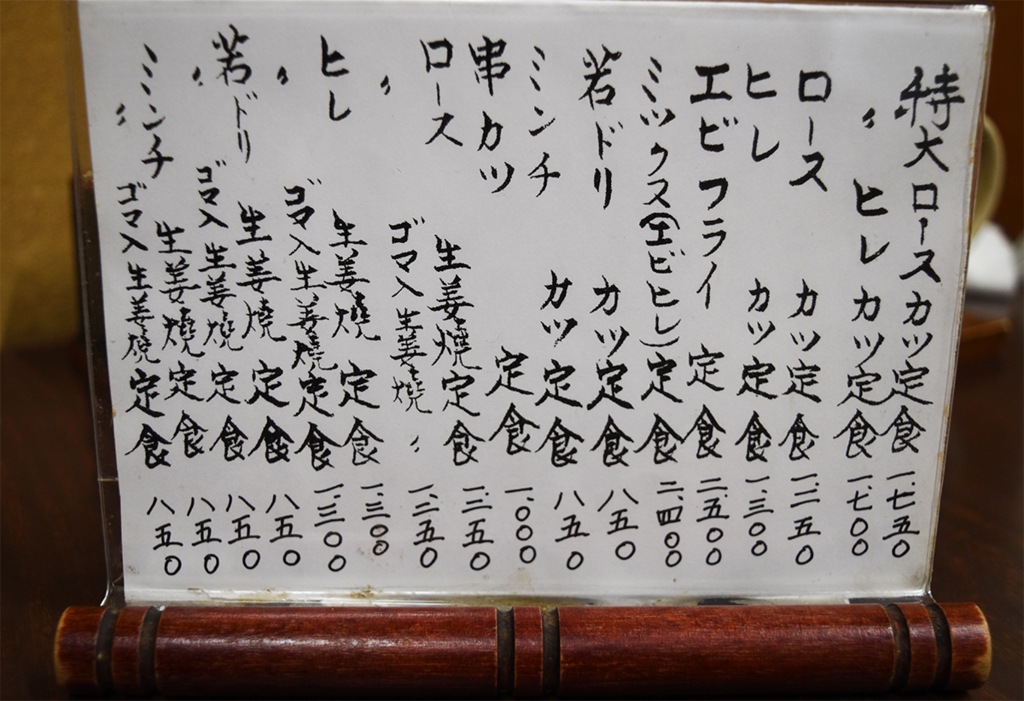 特大ロースカツ定食 一.七五〇
〃 ヒレカツ定食 一.七〇〇
ロース カツ定食 一.二五〇
ヒレ カツ定食 一.三〇〇
エビフライ定食 二.五〇〇
ミックス(エビヒレ)定食 二.四〇〇
若ドリ カツ定食 八五〇
ミンチ カツ定食 八五〇
串カツ 定食 一.〇〇〇
ロース 生姜燒定食 一.二五〇
〃 ゴマ入生姜燒 〃 一.二五〇
ヒレ 生姜燒定食 一.三〇〇
〃 ゴマ入生姜燒定食 一.三〇〇
若ドリ 生姜燒定食 八五〇
〃 ゴマ入生姜燒定食 八五〇
ミンチ 生姜燒定食 八五〇
〃 ゴマ入生姜燒定食 八五〇